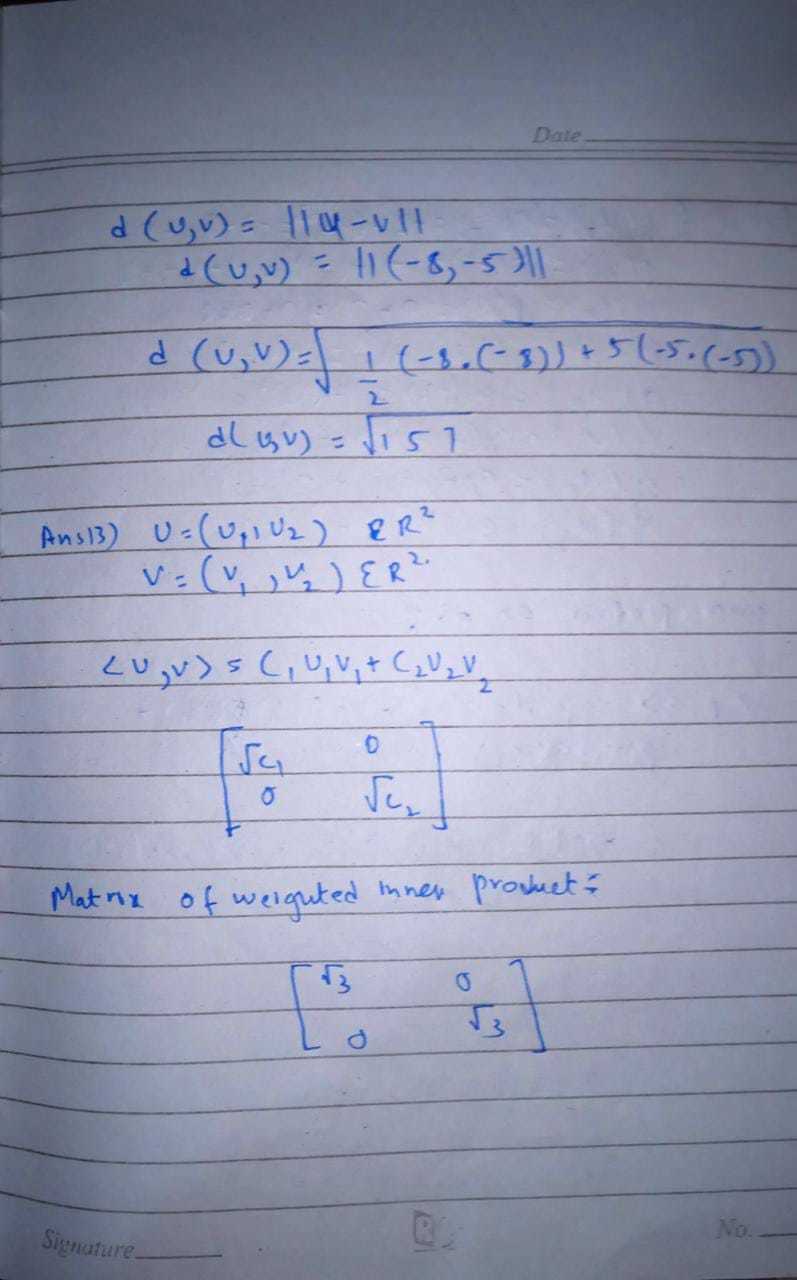 Date
d (u,v) = ||u-v||
d (u,v) = ||(-8,-5)||
d (u,v) = √ 1/2 (-8.(-8)) + 5(-5.(-5))
d(u,v) = √157
Ans13) U = (U1, U2) ε R²
V = (V1, V2) ε R².
<U,V> = C1U1V1 + C2U2V2
[ √C1 0
0 √C2 ]
Matrix of weiguted inner product:
[ √3 0
0 √3 ]
Signature
No.